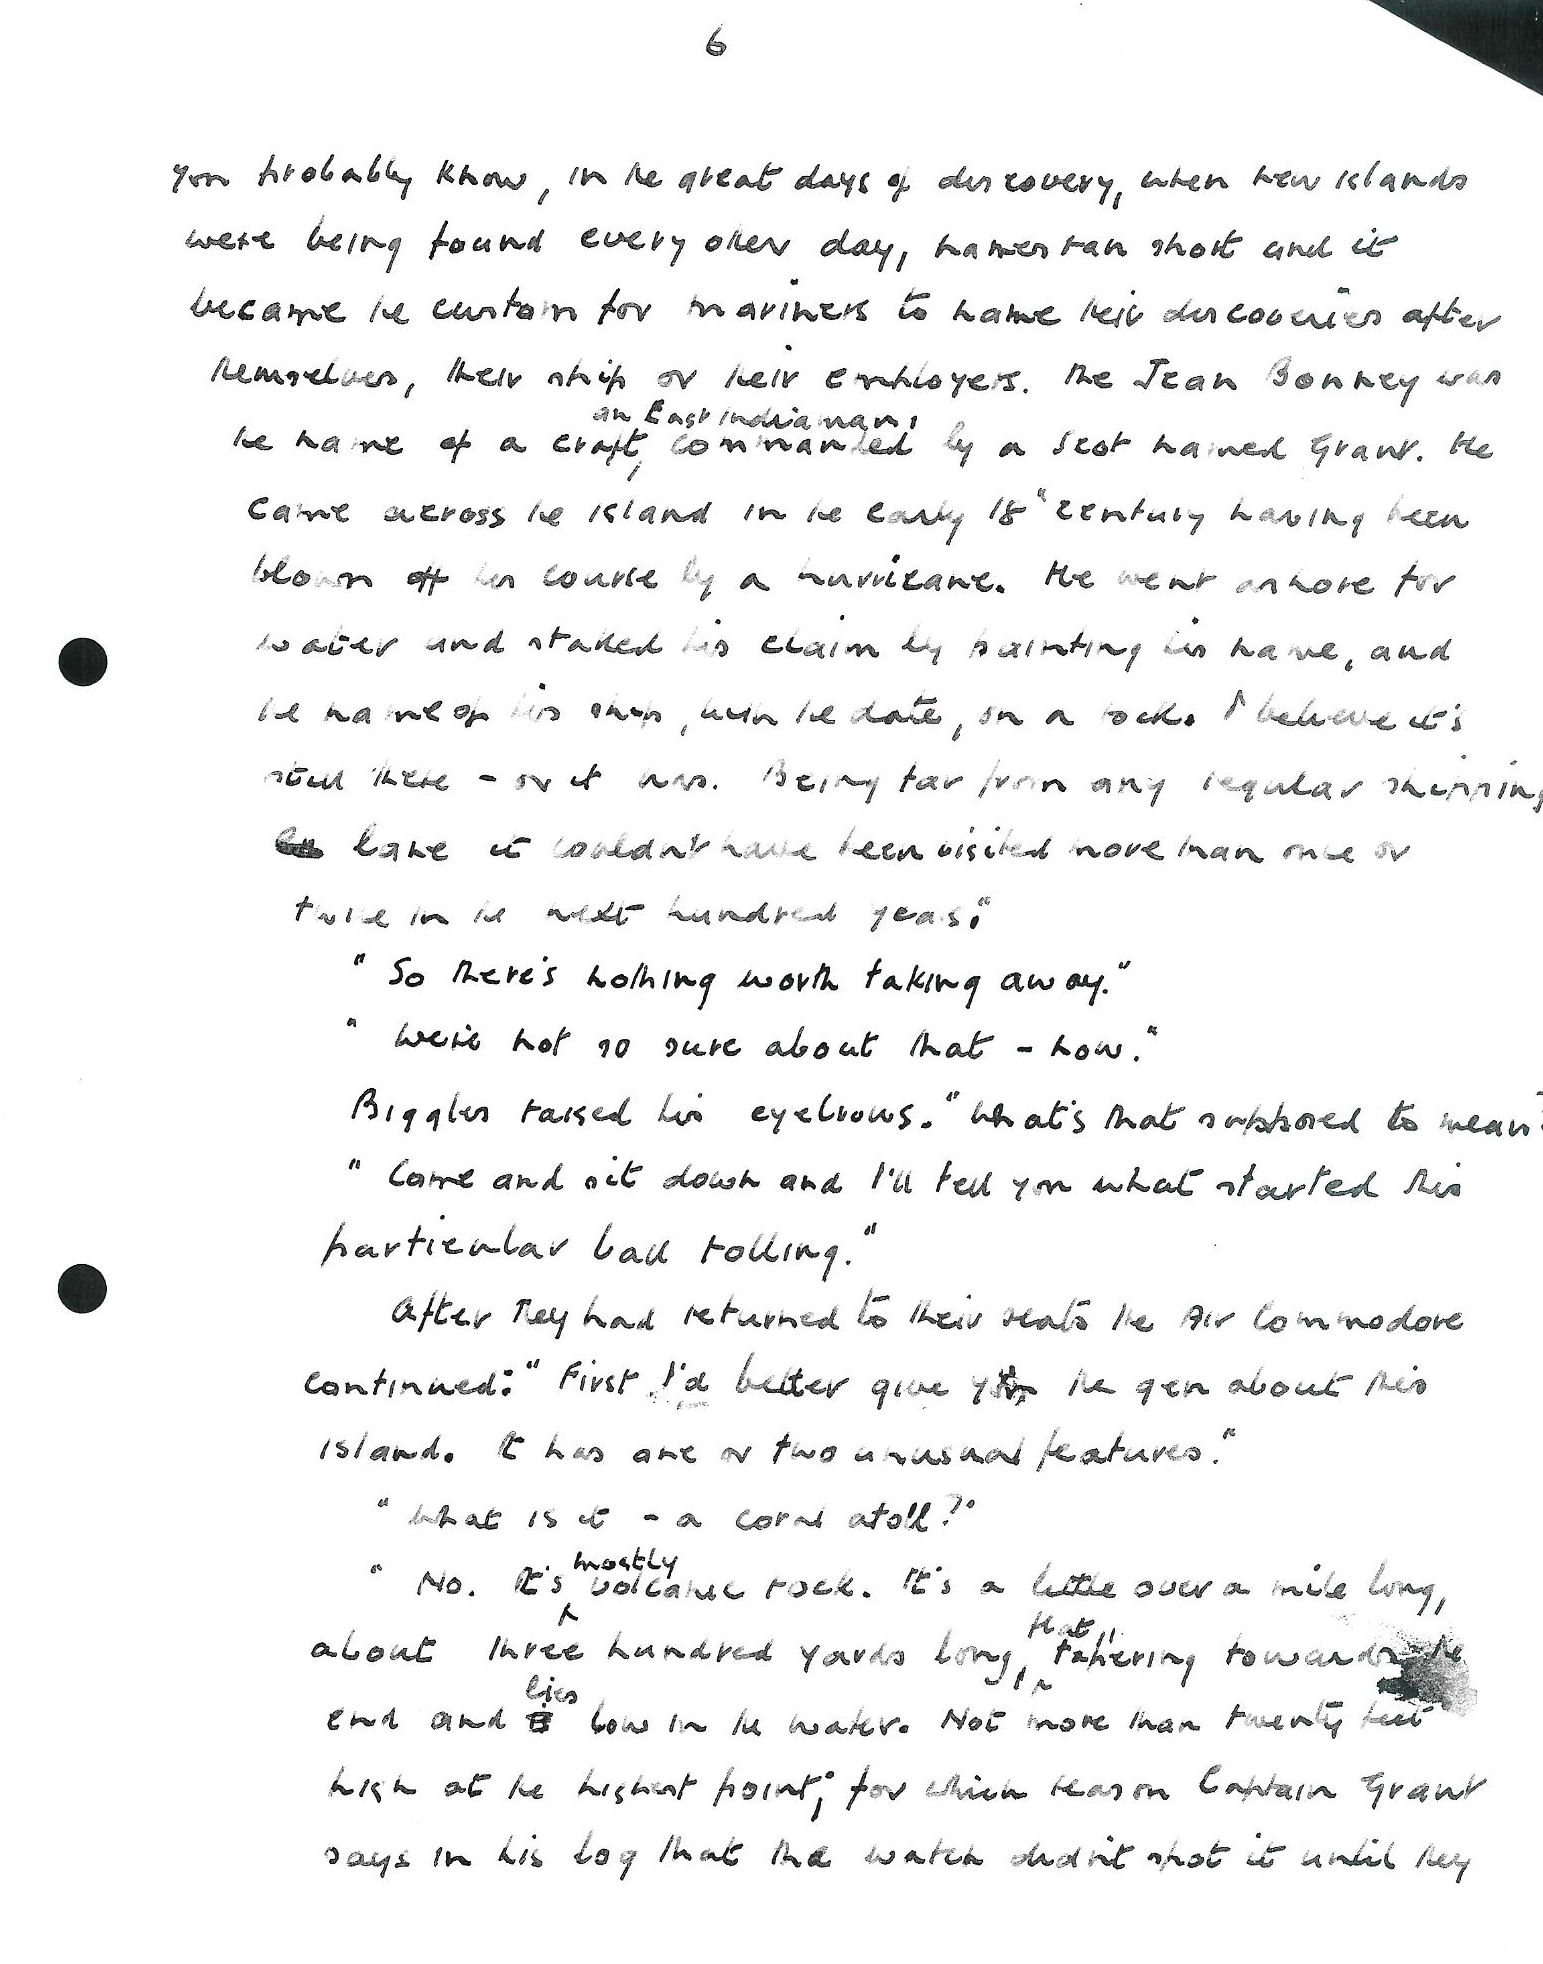 6
you probably know, in the great days of discovery, when new islands
were being found every other day, names ran short and it
became the custom for mariners to name their discoveries after
themselves, their ship or their employers. The Jean Bonney was
an East Indiaman,
the name of a craft, commanded by a Scot named Grant. He
came across the island in the early 18" century having been
blown off his course by a hurricane. He went ashore for
water and staked his claim by painting his name, and
the name of his ship, with the date, on a rock. I believe it's
still there - or it was. Being far from any regular shipping
lane it couldn't have been visited more than once or
twice in the next hundred years."
"So there's nothing worth taking away."
"We're not so sure about that - now."
Biggles raised his eyebrows. "What's that supposed to mean?
"Come and sit down and I'll tell you what started this
particular ball rolling."
After they had returned to their seats the Air Commodore
continued: "First I'd better give you the gen about this
island. It has one or two unusual features."
"What is it - a coral atoll?"
mostly
"No. It's volcanic rock. It's a little over a mile long,
flat,
about three hundred yards long, tapering towards the
lies
end and low in the water. Not more than twenty feet
high at the highest point; for which reason Captain Grant
says in his log that the watch didn't spot it until they